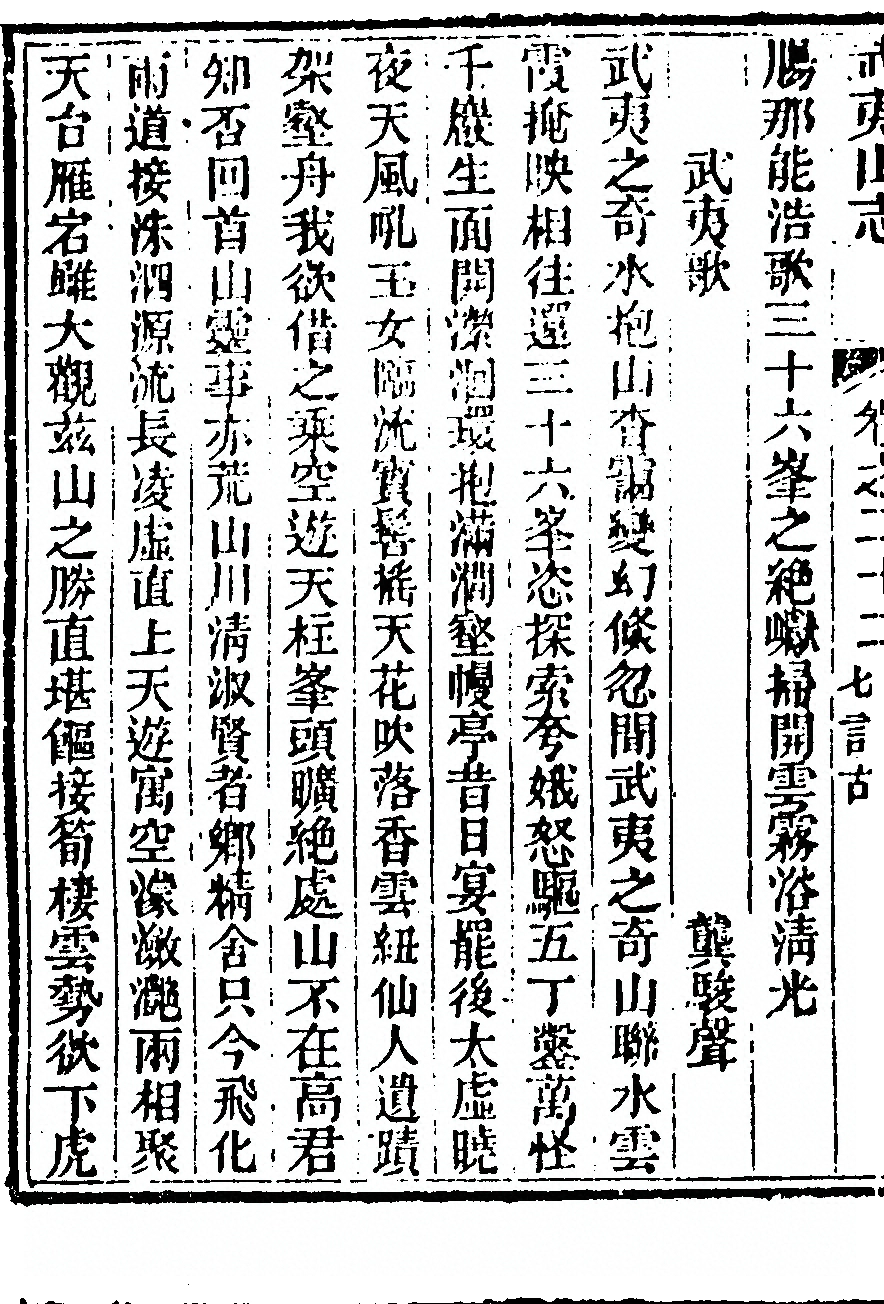 武夷山志　卷之二十二　七言古
腸那能浩歌三十六峯之絶巘掃開雲霧浴淸光
武夷歌　龔駿聲
武夷之奇水抱山杳靄變幻倐忽間武夷之奇山聯水雲
霞掩映相往還三十六峯恣探索夸娥怒驅五丁鑿萬怪
千巖生面開瀠洄環抱滿澗壑幔亭昔日宴罷後太虛曉
夜天風吼玉女臨流寶髻橫天花吹落香雲紐仙人遺蹟
架壑舟我欲借之乘空遊天柱峯頭曠絶處山不在高君
知否回首山靈事亦荒山川淸淑賢者鄕精舍只今飛化
雨道接洙泗源流長凌虛直上天遊寓空濛瀲灔兩相聚
天台雁宕雖大觀茲山之勝直堪傴接筍棲雲勢欲下虎